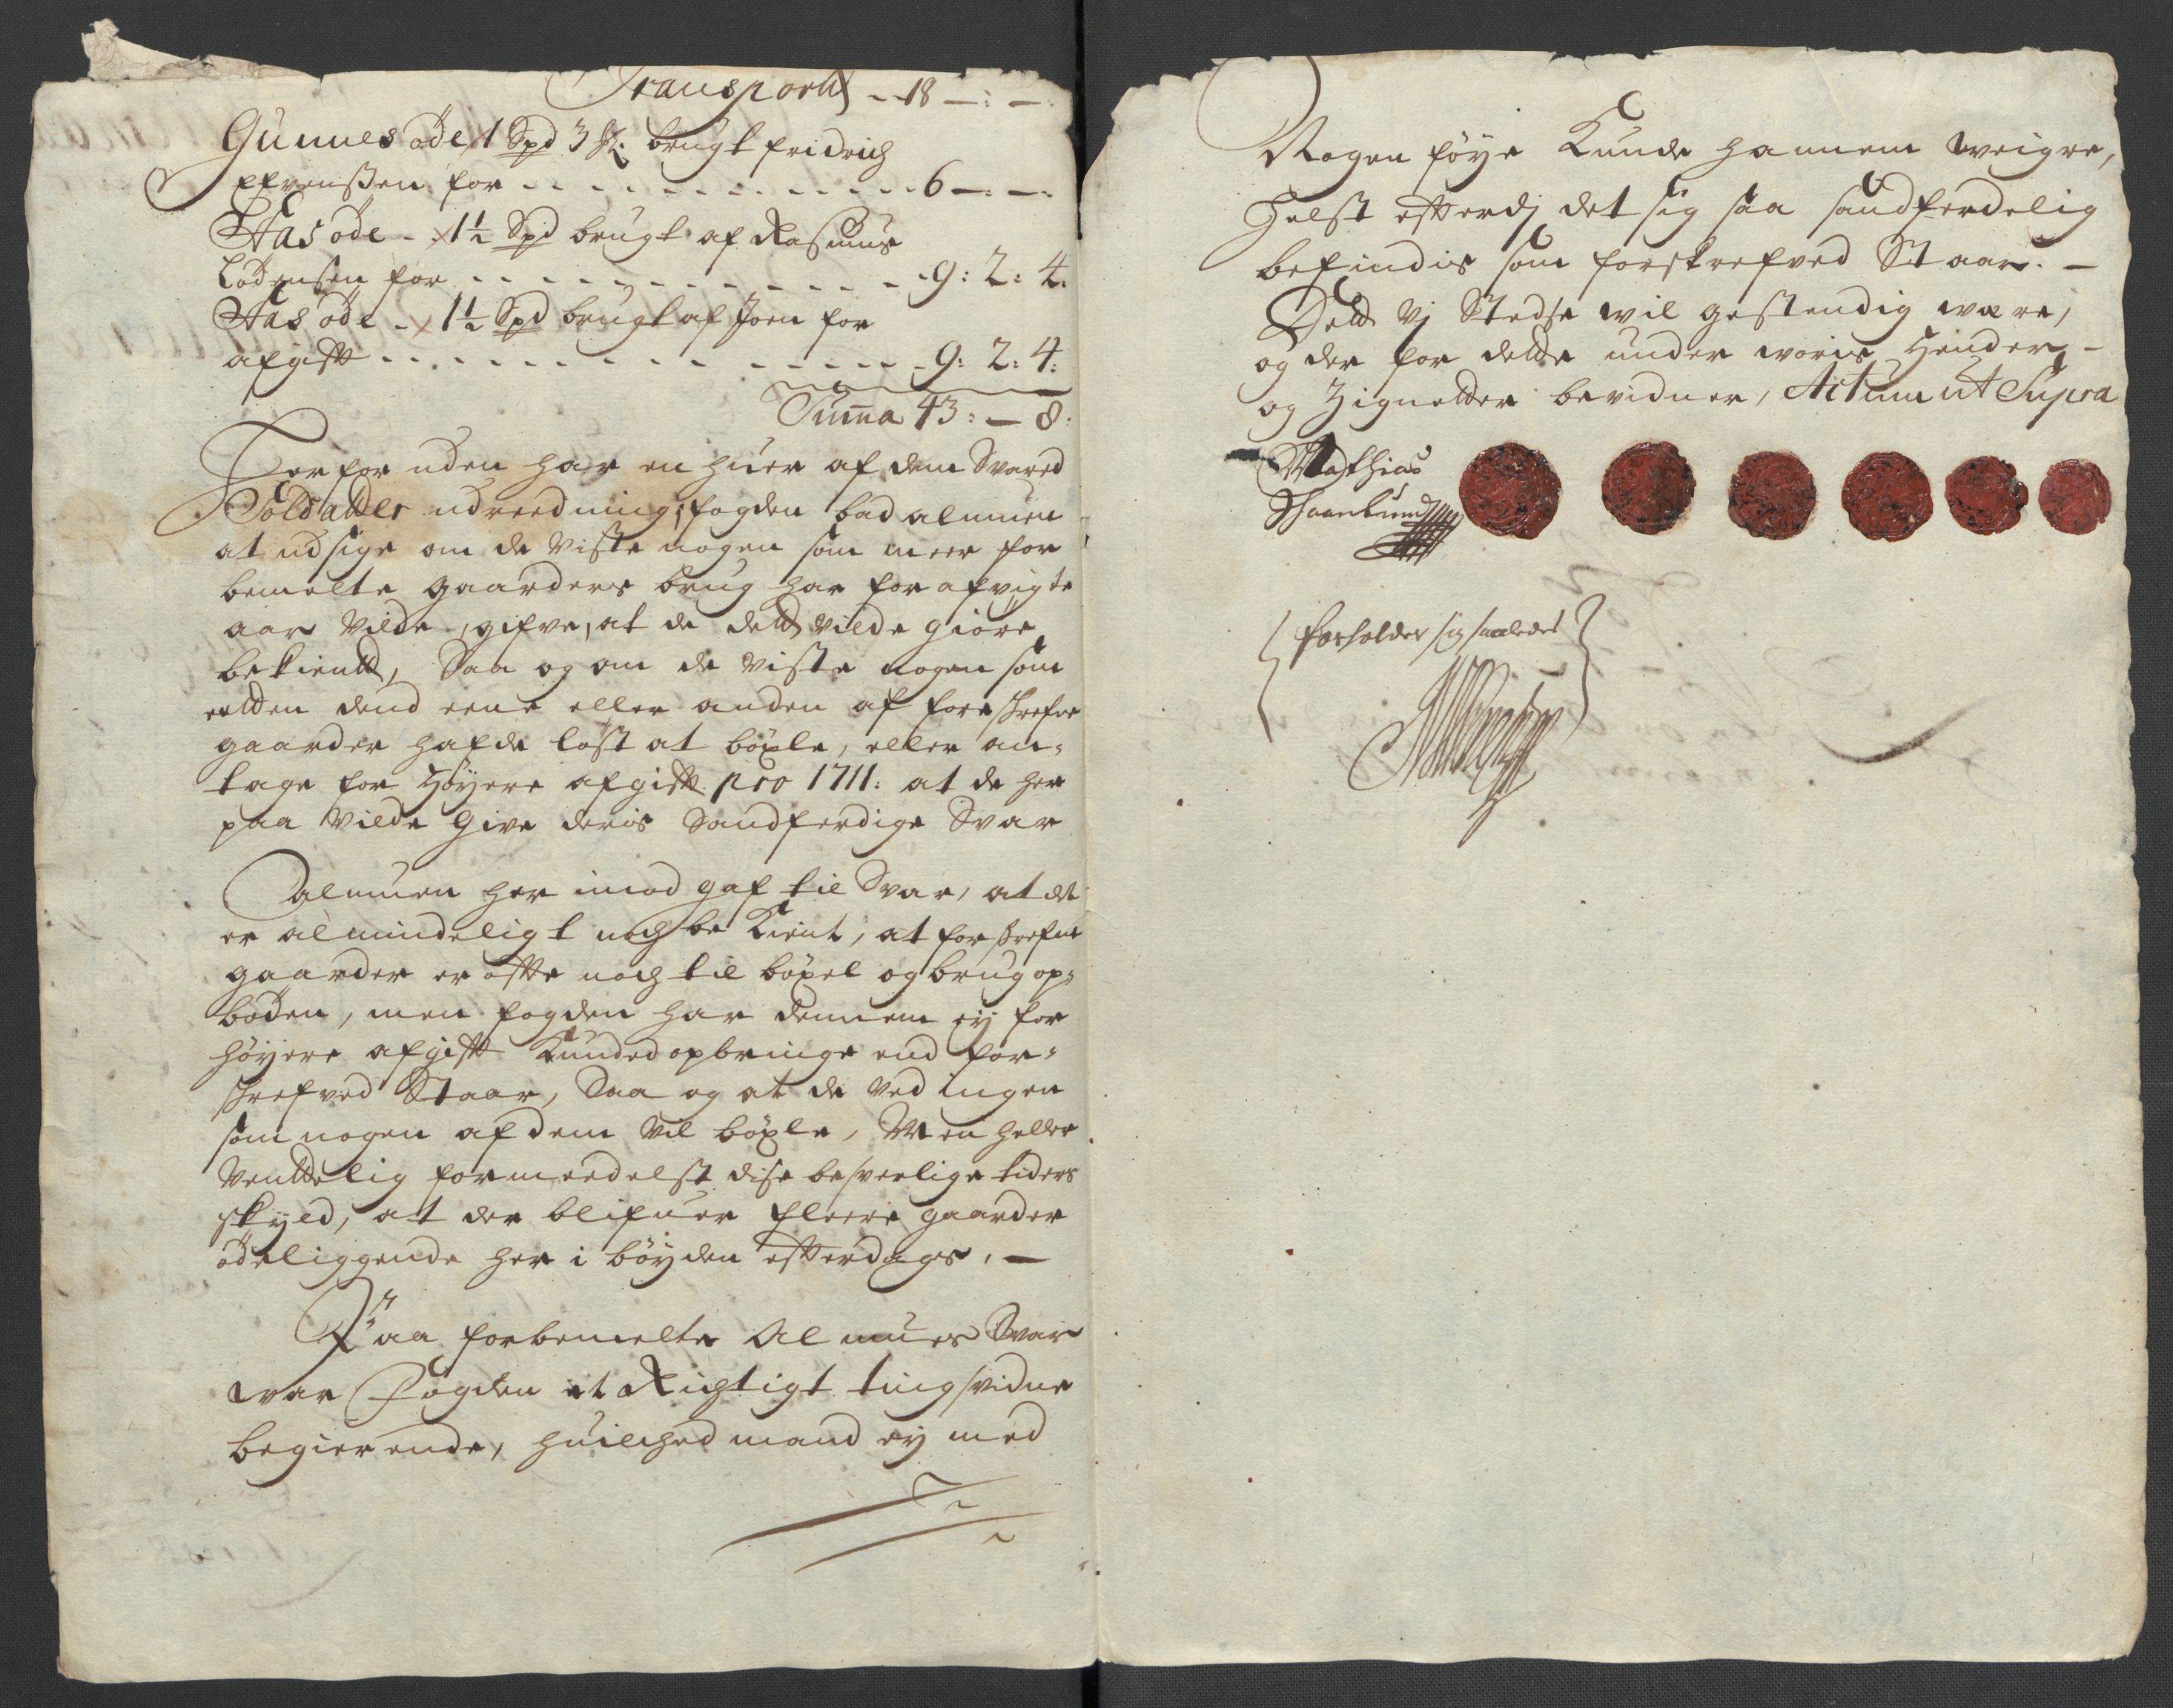 Transportt - - 18 - : - :
Gunnes öde 1 Spd 3 fk: brugt fridrich
Efvenßen for - - - - - - - - - - - 6 - : - :
Aas öde - 1½ Spd brugt af Rasmus
Lödensen for - - - - - - - - - - - 9: 2: 4:
Aas öde - 1½ Spd brugt af Joen for
afgift - - - - - - - - - - - 9: 2: 4:
Summa 43: - 8:
Der for uden har en huer af dem Svared
Soldatter udreedning; fogden bad almuen
at udsige om de viste nogen som meer for
bemelte gaarders brug har for afvigte
aar vilde gifve, at de dett vilde giöre
bekientt, Saa og om de viste nogen som
endten dend eene eller anden af foreskrefne
gaarder hafde löst at böxle, eller an-
tage for höyere afgift pro 1711: at de her
paa vilde give deris Sandferdige Svar
almuen her imod gaf til Svar, at det
er almindeligt noch be Kient, at forskrefne
gaarder er offte noch til böxel og brug op-
böden, men fogden har dennem ey for
höyere afgift Kunded opbringe end for-
skrefved Staar, Saa og at de ved ingen
som nogen af dem vil böxle, Men heller
venttelig formeedelst dise besverlige tiders
skyld, at der blifuer fleere gaarder
ödeliggende her i böyden effterdags, -
Paa forbemelte Almues Svar
war Fogden et Richtigt tingsvidne
begierende, huilched mand ey med
Nogen föye Kunde hannem weigre,
Helst efterdj det sig saa sandferdelig
befindis som forskrefved Staar. -
Dett vj Stedse wil gestendig være,
og der for dette under woris Hender -
og Zignetter bevidner, Actum ut Supra
Mathias
forholder sig saaledes